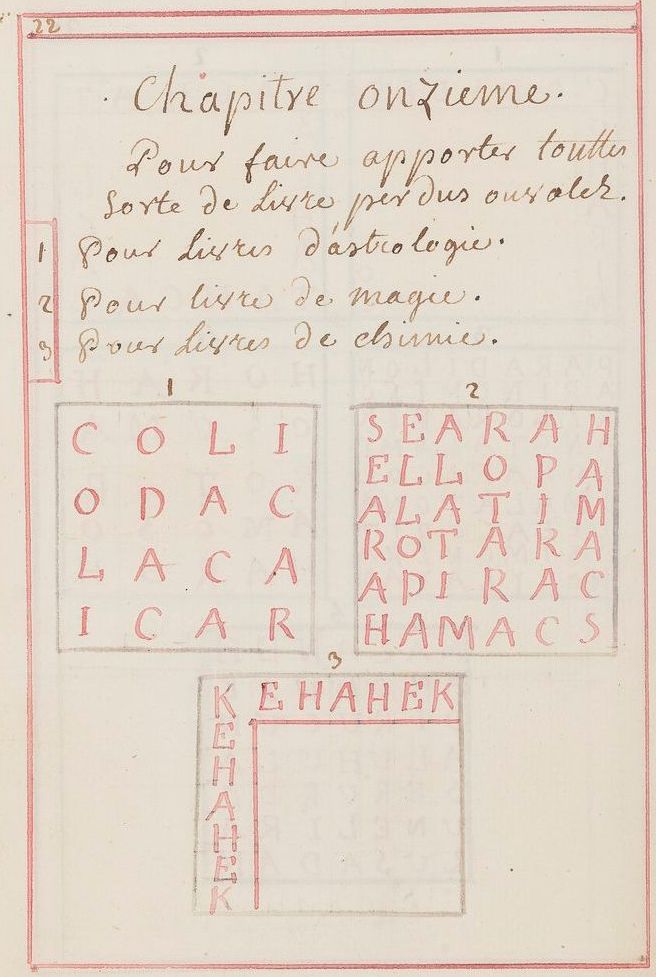 22
Chapitre onzieme.
Pour faire apporter touttes
sorte de Livre perdus ou volez.
1 Pour Livres d'astrologie.
2 Pour livre de magie.
3 Pour Livres de chimie.
1
C O L I
O D A C
L A C A
I C A R
2
S E A R A H
E L L O P A
A L A T I M
R O T A R A
A P I R A C
H A M A C S
3
K E H A H E K
E
H
A
H
E
K